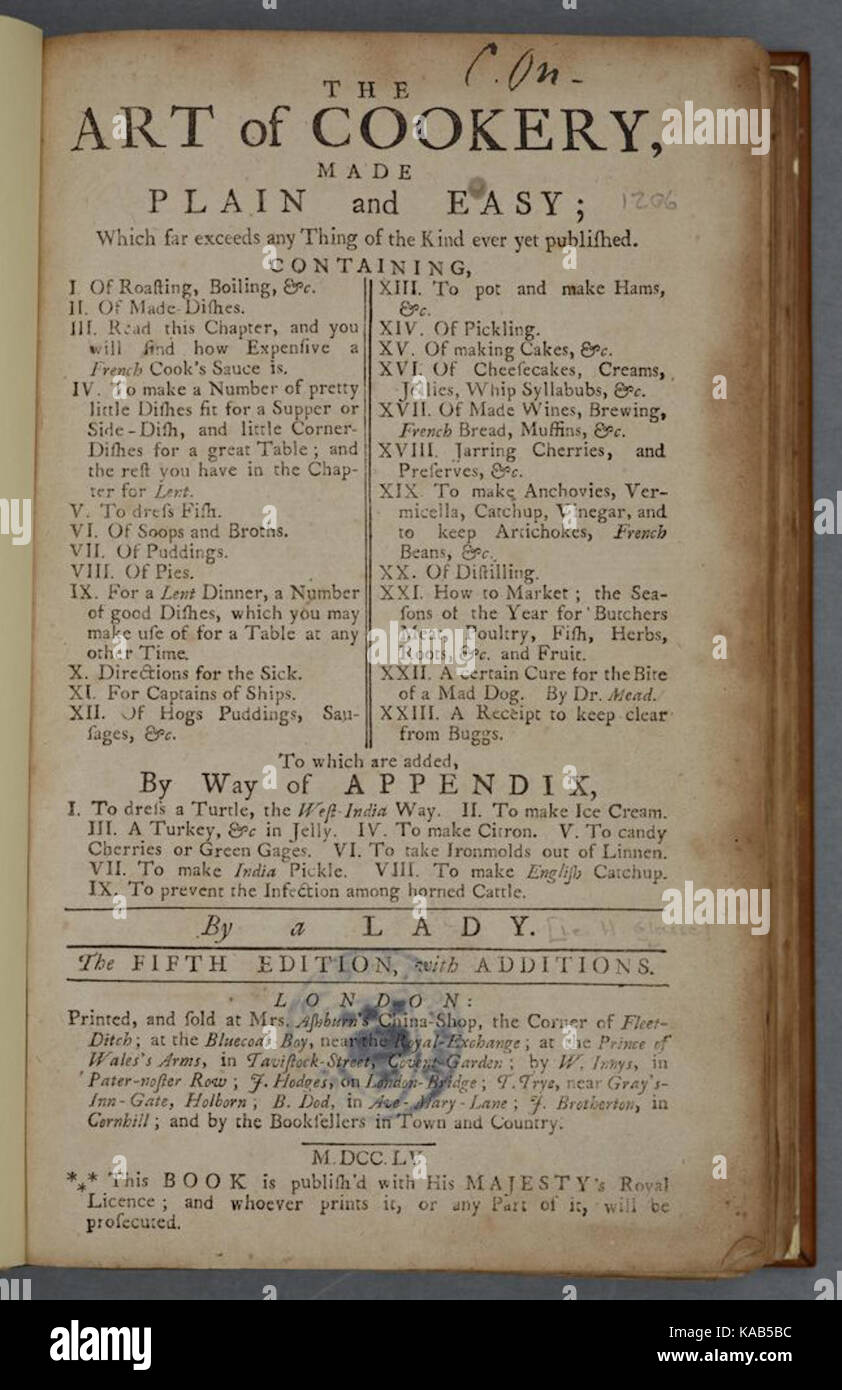 C. On-
THE
ART of COOKERY,
MADE
PLAIN and EASY;
1206
Which far exceeds any Thing of the Kind ever yet publiſhed.
CONTAINING,
I. Of Roaſting, Boiling, &c.
II. Of Made-Diſhes.
III. Read this Chapter, and you
will find how Expenſive a
French Cook's Sauce is.
IV. To make a Number of pretty
little Diſhes fit for a Supper or
Side-Diſh, and little Corner-
Diſhes for a great Table; and
the reſt you have in the Chap-
ter for Lent.
V. To dreſs Fiſh.
VI. Of Soops and Broths.
VII. Of Puddings.
VIII. Of Pies.
IX. For a Lent Dinner, a Number
of good Diſhes, which you may
make uſe of for a Table at any
other Time.
X. Directions for the Sick.
XI. For Captains of Ships.
XII. Of Hogs Puddings, Sau-
ſages, &c.
XIII. To pot and make Hams,
&c.
XIV. Of Pickling.
XV. Of making Cakes, &c.
XVI. Of Cheeſecakes, Creams,
Jellies, Whip Syllabubs, &c.
XVII. Of Made Wines, Brewing,
French Bread, Muffins, &c.
XVIII. Jarring Cherries, and
Preſerves, &c.
XIX. To make Anchovies, Ver-
micella, Catchup, Vinegar, and
to keep Artichokes, French
Beans, &c.
XX. Of Diſtilling.
XXI. How to Market; the Sea-
ſons of the Year for Butchers
Meat, Poultry, Fiſh, Herbs,
Roots, &c. and Fruit.
XXII. A certain Cure for the Bite
of a Mad Dog. By Dr. Mead.
XXIII. A Receipt to keep clear
from Buggs.
To which are added,
By Way of APPENDIX,
I. To dreſs a Turtle, the Weſt-India Way. II. To make Ice Cream.
III. A Turkey, &c in Jelly. IV. To make Citron. V. To candy
Cherries or Green Gages. VI. To take Ironmolds out of Linnen.
VII. To make India Pickle. VIII. To make Engliſh Catchup.
IX. To prevent the Infection among horned Cattle.
By a LADY.
The FIFTH EDITION, with ADDITIONS.
LONDON:
Printed, and ſold at Mrs. Aſhburn's China-Shop, the Corner of Fleet-
Ditch; at the Bluecoat Boy, near the Royal-Exchange; at the Prince of
Wales's Arms, in Taviſtock-Street, Covent-Garden; by W. Innys, in
Pater-noſter Row; J. Hodges, on London-Bridge; T. Trye, near Gray's-
Inn-Gate, Holborn; B. Dod, in Ave-Mary-Lane; J. Brotherton, in
Cornhill; and by the Bookſellers in Town and Country.
M.DCC.LV
*** This BOOK is publiſh'd with His MAJESTY's Royal
Licence; and whoever prints it, or any Part of it, will be
proſecuted.
alamy
alamy
alamy
Image ID: KAB5BC
www.alamy.com